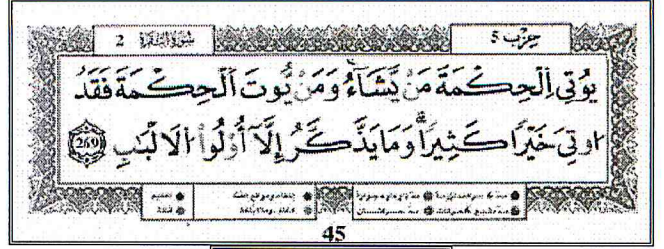 سورة البقرة 2 حزب 5
يُوتِي اِ۬لْحِكْمَةَ مَنْ يَّشَآءُۖ وَمَنْ يُّوتَ اَ۬لْحِكْمَةَ فَقَدُ
ا۟وتِيَ خَيْراٗ كَثِيراٗۖ وَمَا يَذَّكَّرُ إِلَّآ أُوْلُواْ اُ۬لَالْبَٰبِ 269
45